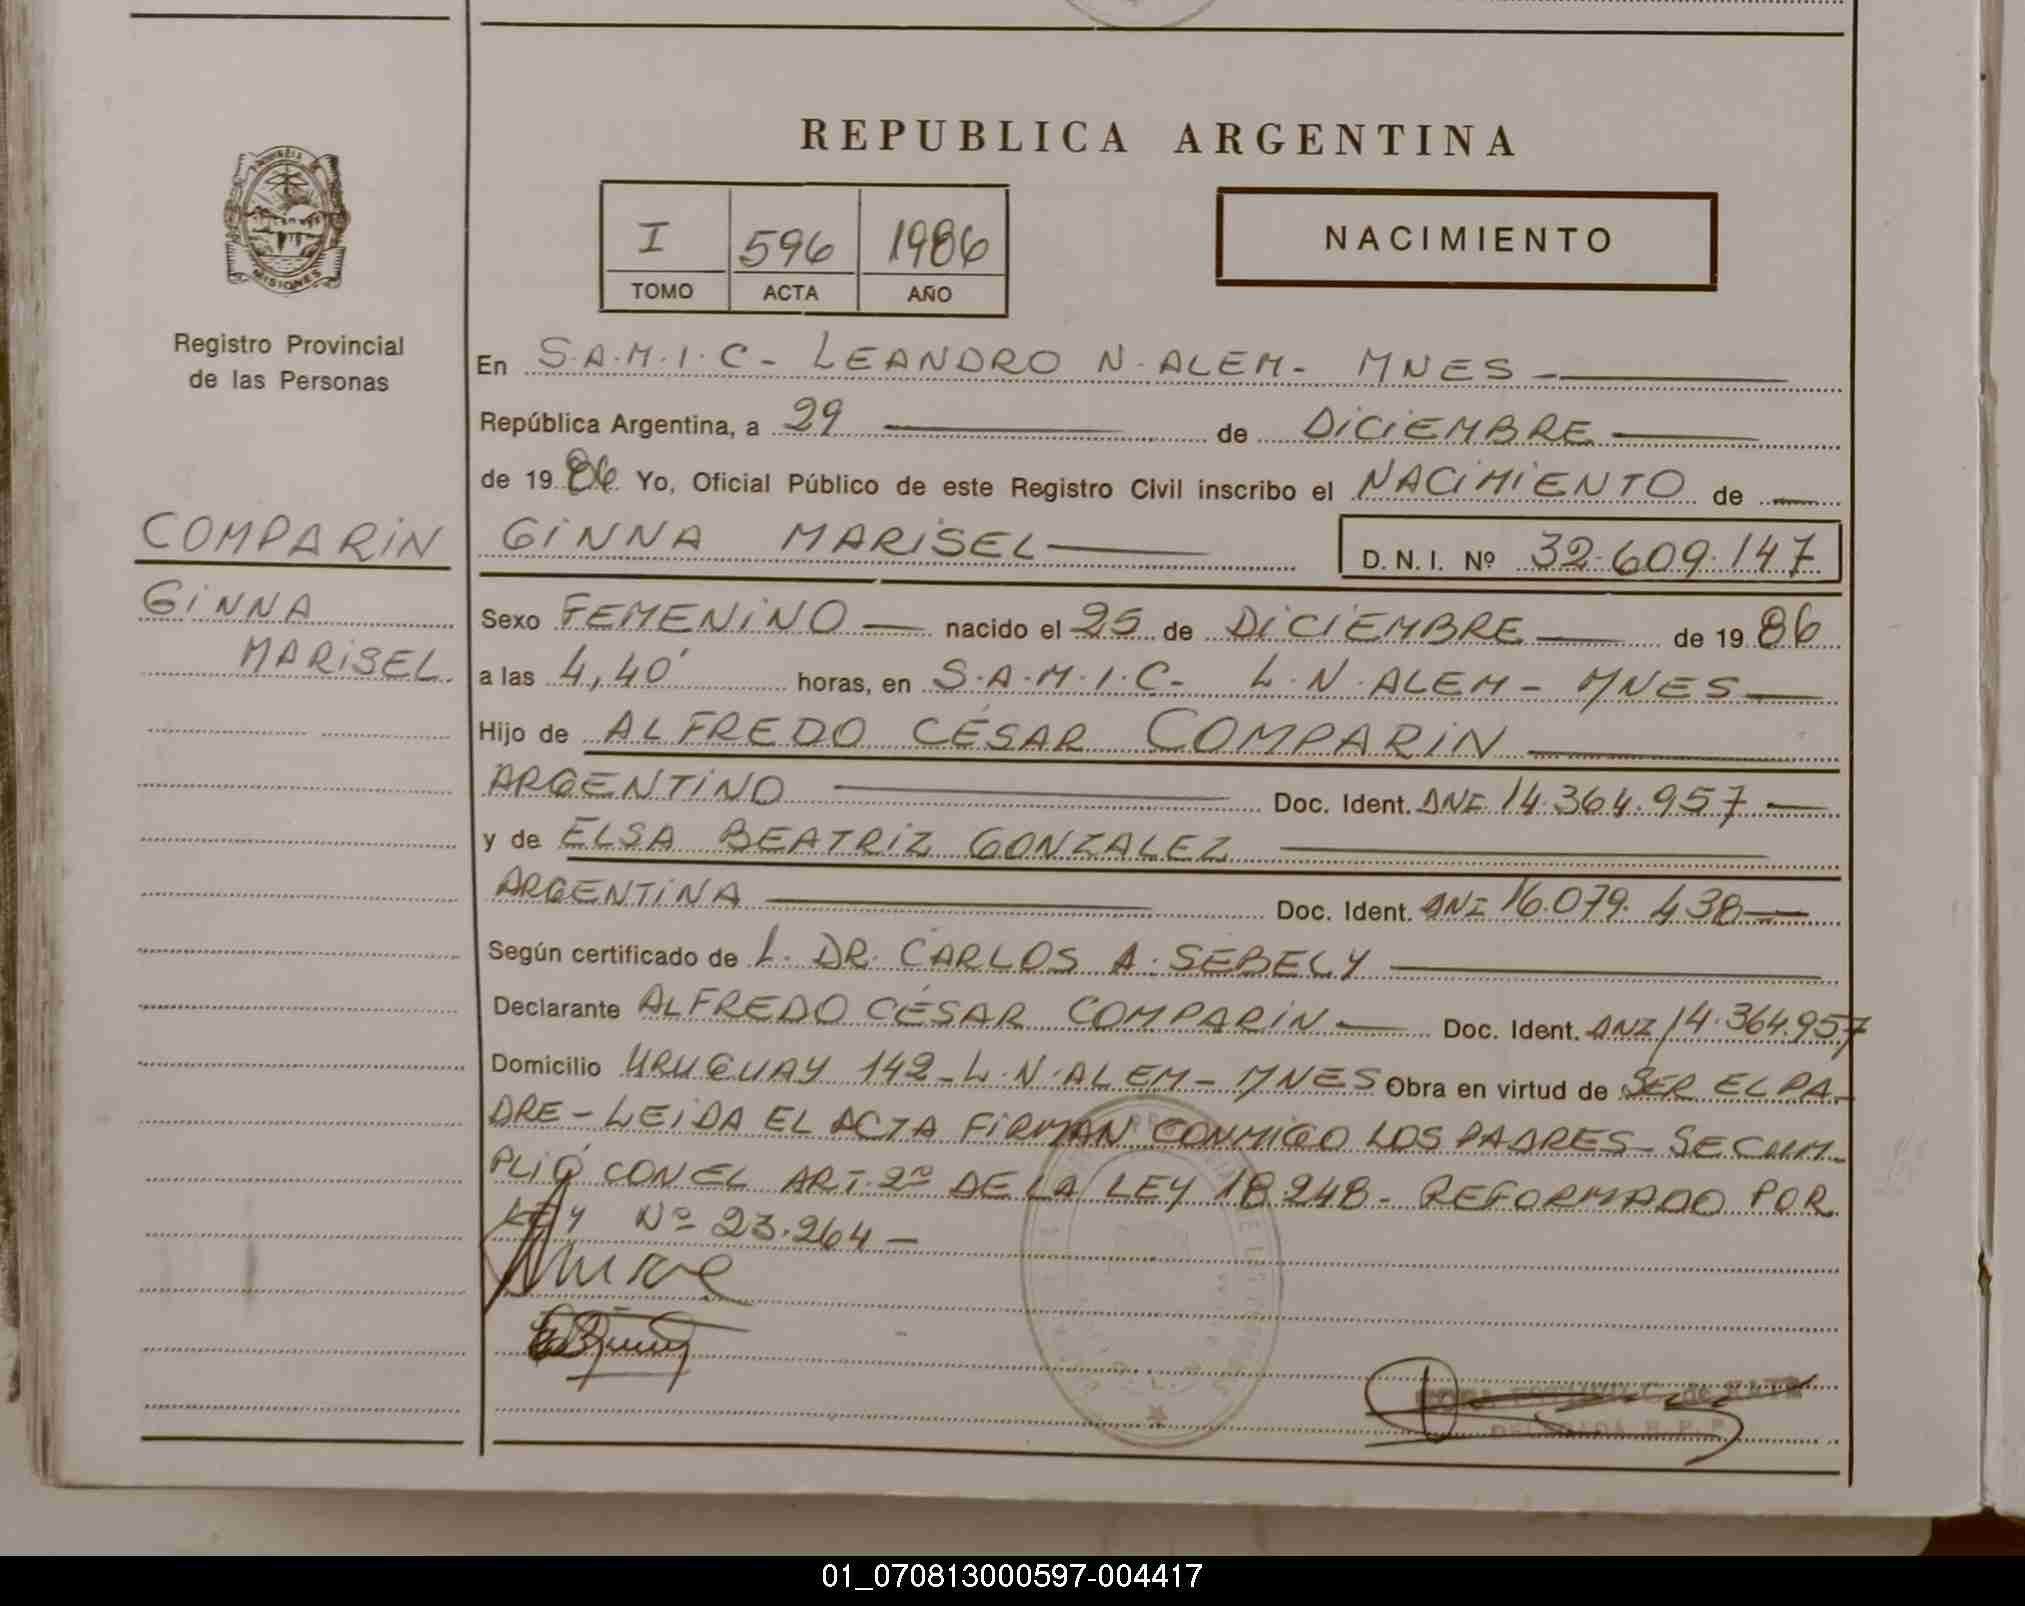 REPUBLICA ARGENTINA
PROVINCIA
MISIONES
Registro Provincial
de las Personas
I 596 1986
TOMO ACTA AÑO
NACIMIENTO
En S.A.M.I.C- LEANDRO N. ALEM- MNES-
República Argentina, a 29 de DICIEMBRE
de 1986 Yo, Oficial Público de este Registro Civil inscribo el NACIMIENTO de
COMPARIN
GINNA
MARISEL.
GINNA MARISEL D. N. I. Nº 32.609.147
Sexo FEMENINO nacido el 25 de DICIEMBRE de 1986
a las 4,40' horas, en S.A.M.I.C- L.N. ALEM- MNES
Hijo de ALFREDO CÉSAR COMPARIN
ARGENTINO Doc. Ident. DNI 14.364.957
y de ELSA BEATRIZ GONZALEZ
ARGENTINA Doc. Ident. DNI 16.079.438
Según certificado de L. DR. CARLOS A. SEBELY
Declarante ALFREDO CÉSAR COMPARIN Doc. Ident. DNI 14.364.957
Domicilio URUGUAY 142-L.N.ALEM-MNES Obra en virtud de SER EL PA-
DRE- LEIDA EL ACTA FIRMAN CONMIGO LOS PADRES- SE CUM-
PLIÓ CON EL ART. 2º DE LA LEY 18.248- REFORMADO POR
LEY Nº 23.264-
01_070813000597-004417